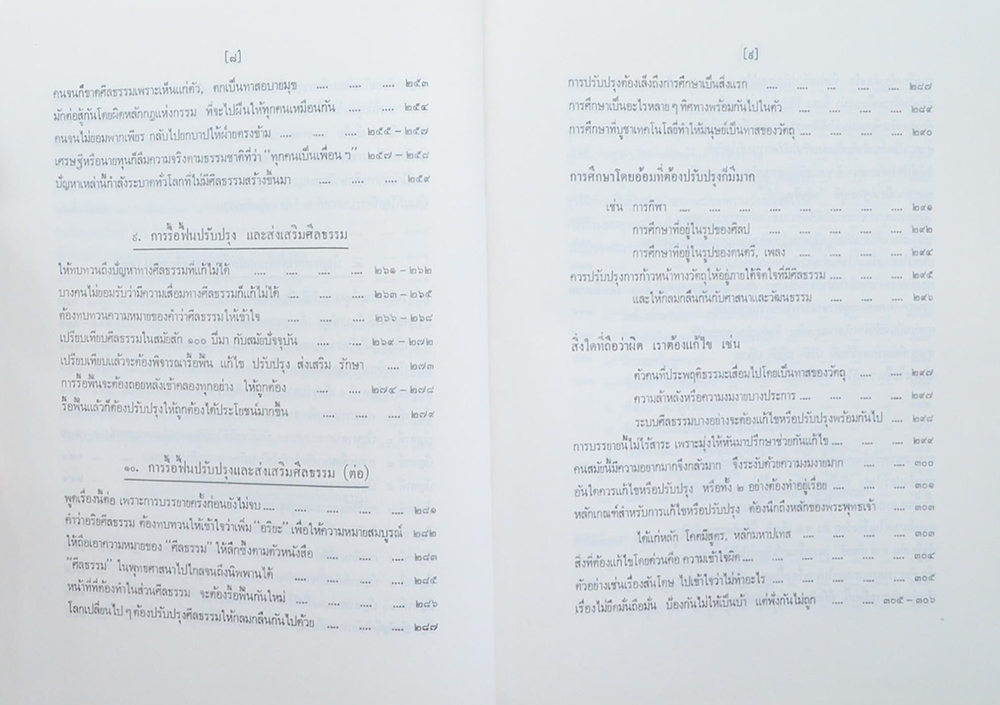 [๘]
คนจนก็ขาดศีลธรรมเพราะเห็นแก่ตัว, ตกเป็นทาสอบายมุข .... .... .... ๒๕๓
มักต่อสู้กันโดยผิดหลักกฎแห่งกรรม ที่จะไปฝืนให้ทุกคนเหมือนกัน .... .... ๒๕๔
คนจนไม่ยอมพากเพียร กลับไปยกบาปให้ฝ่ายตรงข้าม .... .... .... ๒๕๕ – ๒๕๗
เศรษฐีหรือนายทุนก็ลืมความจริงตามธรรมชาติที่ว่า “ทุกคนเป็นเพื่อน ๆ” ๒๕๗ – ๒๕๘
ปัญหาเหล่านี้กำลังระบาดทั่วโลกที่ไม่มีศีลธรรมสร้างขึ้นมา .... .... .... ๒๕๙
๙. การรื้อฟื้นปรับปรุง และส่งเสริมศีลธรรม
ให้ทบทวนถึงปัญหาทางศีลธรรมที่แก้ไม่ได้ .... .... .... .... ๒๖๑ – ๒๖๒
บางคนไม่ยอมรับว่ามีความเสื่อมทางศีลธรรมก็แก้ไม่ได้ .... .... .... ๒๖๓ – ๒๖๕
ต้องทบทวนความหมายของคำว่าศีลธรรมให้เข้าใจ .... .... .... ๒๖๖ – ๒๖๘
เปรียบเทียบศีลธรรมในสมัยสัก ๑๐๐ ปีมา กับสมัยปัจจุบัน .... .... ๒๖๙ – ๒๗๒
เปรียบเทียบแล้วจะต้องพิจารณารื้อฟื้น แก้ไข ปรับปรุง ส่งเสริม รักษา .... ๒๗๓
การรื้อฟื้นจะต้องถอยหลังเข้าคลองทุกอย่าง ให้ถูกต้อง .... .... ๒๗๔ – ๒๗๘
รื้อฟื้นแล้วก็ต้องปรับปรุงให้ถูกต้องได้ประโยชน์มากขึ้น .... .... .... ๒๗๙
๑๐. การรื้อฟื้นปรับปรุงและส่งเสริมศีลธรรม (ต่อ)
พูดเรื่องนี้ต่อ เพราะการบรรยายครั้งก่อนยังไม่จบ .... .... .... .... ๒๘๑
คำว่าอริยศีลธรรม ต้องทบทวนให้เข้าใจว่าเพิ่ม “อริยะ” เพื่อให้ความหมายสมบูรณ์ ๒๘๒
ให้ถือเอาความหมายของ “ศีลธรรม” ให้ลึกซึ้งตามตัวหนังสือ .... .... .... ๒๘๓
“ศีลธรรม” ในพุทธศาสนาไปไกลจนถึงนิพพานได้ .... .... .... ๒๘๕
หน้าที่ที่ต้องทำในส่วนศีลธรรม จะต้องรื้อฟื้นกันใหม่ .... .... .... ๒๘๖
โลกเปลี่ยนไป ๆ ต้องปรับปรุงศีลธรรมให้กลมกลืนกันไปด้วย .... .... .... ๒๘๗
[๙]
การปรับปรุงต้องเล็งถึงการศึกษาเป็นสิ่งแรก .... .... .... .... ๒๘๗
การศึกษาเป็นอะไรหลาย ๆ ทิศทางพร้อมกันไปในตัว .... .... .... ๒๘๙
การศึกษาที่บูชาเทคโนโลยีทำให้มนุษย์เป็นทาสของวัตถุ .... .... .... ๒๙๐
การศึกษาโดยอ้อมที่ต้องปรับปรุงก็มีมาก
เช่น การกีฬา .... .... .... .... .... .... ๒๙๑
การศึกษาที่อยู่ในรูปของศิลป .... .... .... .... ๒๙๒
การศึกษาที่อยู่ในรูปของดนตรี, เพลง .... .... .... ๒๙๔
ควรปรับปรุงการก้าวหน้าทางวัตถุให้อยู่ภายใต้จิตใจที่มีศีลธรรม .... .... .... ๒๙๕
และให้กลมกลืนกันกับศาสนาและวัฒนธรรม .... .... .... ๒๙๖
สิ่งใดที่ถือว่าผิด เราต้องแก้ไข เช่น
ตัวคนที่ประพฤติธรรมะเสื่อมไปโดยเป็นทาสของวัตถุ .... .... ๒๙๗
ความล้าหลังหรือความงมงายบางประการ .... .... .... ๒๙๗
ระบบศีลธรรมบางอย่างจะต้องแก้ไขหรือปรับปรุงพร้อมกันไป .... ๒๙๘
การบรรยายนี้ไม่ไร้สาระ เพราะมุ่งให้หันมาปรึกษาช่วยกันแก้ไข .... .... .... ๒๙๙
คนสมัยนี้มีความอยากมากจึงกลัวมาก จึงระงับด้วยความงมงายมาก .... .... ๓๐๐
อันใดควรแก้ไขหรือปรับปรุง หรือทั้ง ๒ อย่างต้องทำอยู่เรื่อย .... .... ๓๐๑
หลักเกณฑ์สำหรับการแก้ไขหรือปรับปรุง ต้องนึกถึงหลักของพระพุทธเจ้า .... ๓๐๓
ได้แก่หลัก โคตมีสูตร, หลักมหาปเทส .... .... .... ๓๐๓
สิ่งที่ต้องแก้ไขโดยด่วนคือ ความเข้าใจผิด .... .... .... .... ๓๐๔
ตัวอย่างเช่นเรื่องสันโดษ ไปเข้าใจว่าไม่ทำอะไร .... .... .... .... ๓๐๕
เรื่องไม่ยึดมั่นถือมั่น ป้องกันไม่ให้เป็นบ้า แต่ฟังกันไม่ถูก .... .... ๓๐๕ – ๓๐๖